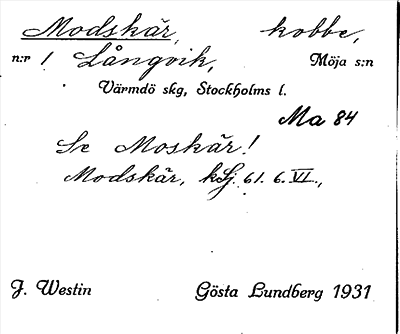 Modskär, kobbe,
n:r 1 Långvik, Möja s:n
Värmdö skg, Stockholms l.
Ma 84
Se Moskär!
Modskär, kSj. 61. 6. VI.,
J. Westin Gösta Lundberg 1931